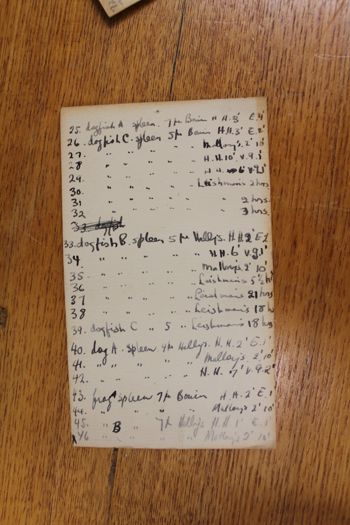 25. dogfish A. spleen. 7µ Bouin H.H. 3' E. 4'
26. dogfish C. spleen 5µ Bouin H.H. 3' E. 2'
27. " " " " " Mallory's. 2' 10'
28 " " " " " H.H. 10' V.G. 1'
29. " " " " " H.H. V.G. 1'
30. " " " " Leishman's 2 hrs.
31 " " " " " 2 hrs.
32 " " " " " 3 hrs.
33. dogfish B. spleen 5µ Helly's. H.H. 2' E. 1
34 " " " " " H.H. 6' V.G. 1'
35 " " " " " Mallory's 2' 10'
36 " " " " Leishman's 5 ½ hrs
37 " " " " Leishman's 21 hrs
38 " " " " Leishman's 18 hrs
39. dogfish C " 5 " Leishman's 18 hrs
40. dog A. spleen 4µ Helly's. H.H. 2' E. 1'
41. " " " " " Mallory's. 2' 10'
42. " " " " " H.H. 7' V.G. 2'
43. frog spleen 7µ Bouin H.H. 2' E. 1'
44. " " " " Mallory's 2' 10'
45. " B " 7µ Helly's H.H. 1' E. 1'
46 " " " " Mallory's 2' 10'